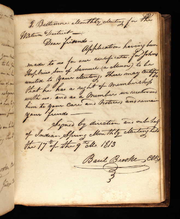 To Baltimore Monthly Meeting for the
Western District
Dear friends.
Application having been
made to us for our certificate for John
Hopkins son of Samuel in order to be
united to your meeting. These may certify
that he has a right of membership
with us. and as a member we recommend
him to your care and notice and remain
your friends
Signed by direction and on behalf
of Indian Spring Monthly Meeting held
this 17th of the 9th Mo. 1813
Basil Brooke Clk